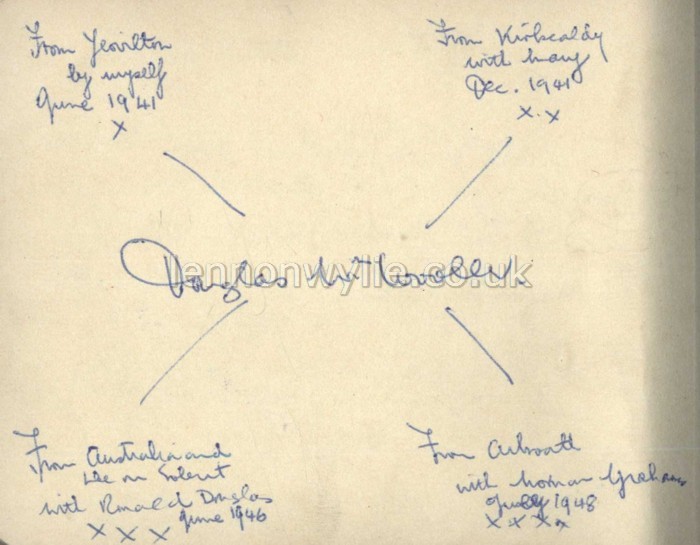 From Yeovilton
by myself
June 1941
x
From Kirkcaldy
with Mary
Dec. 1941
x.x
Douglas
lennonwylie.co.uk
From Australia and
Lee on Solent
with Ronald Douglas
June 1946
x x x
From Arbroath
with Norman Graham
July 1948
x x x x